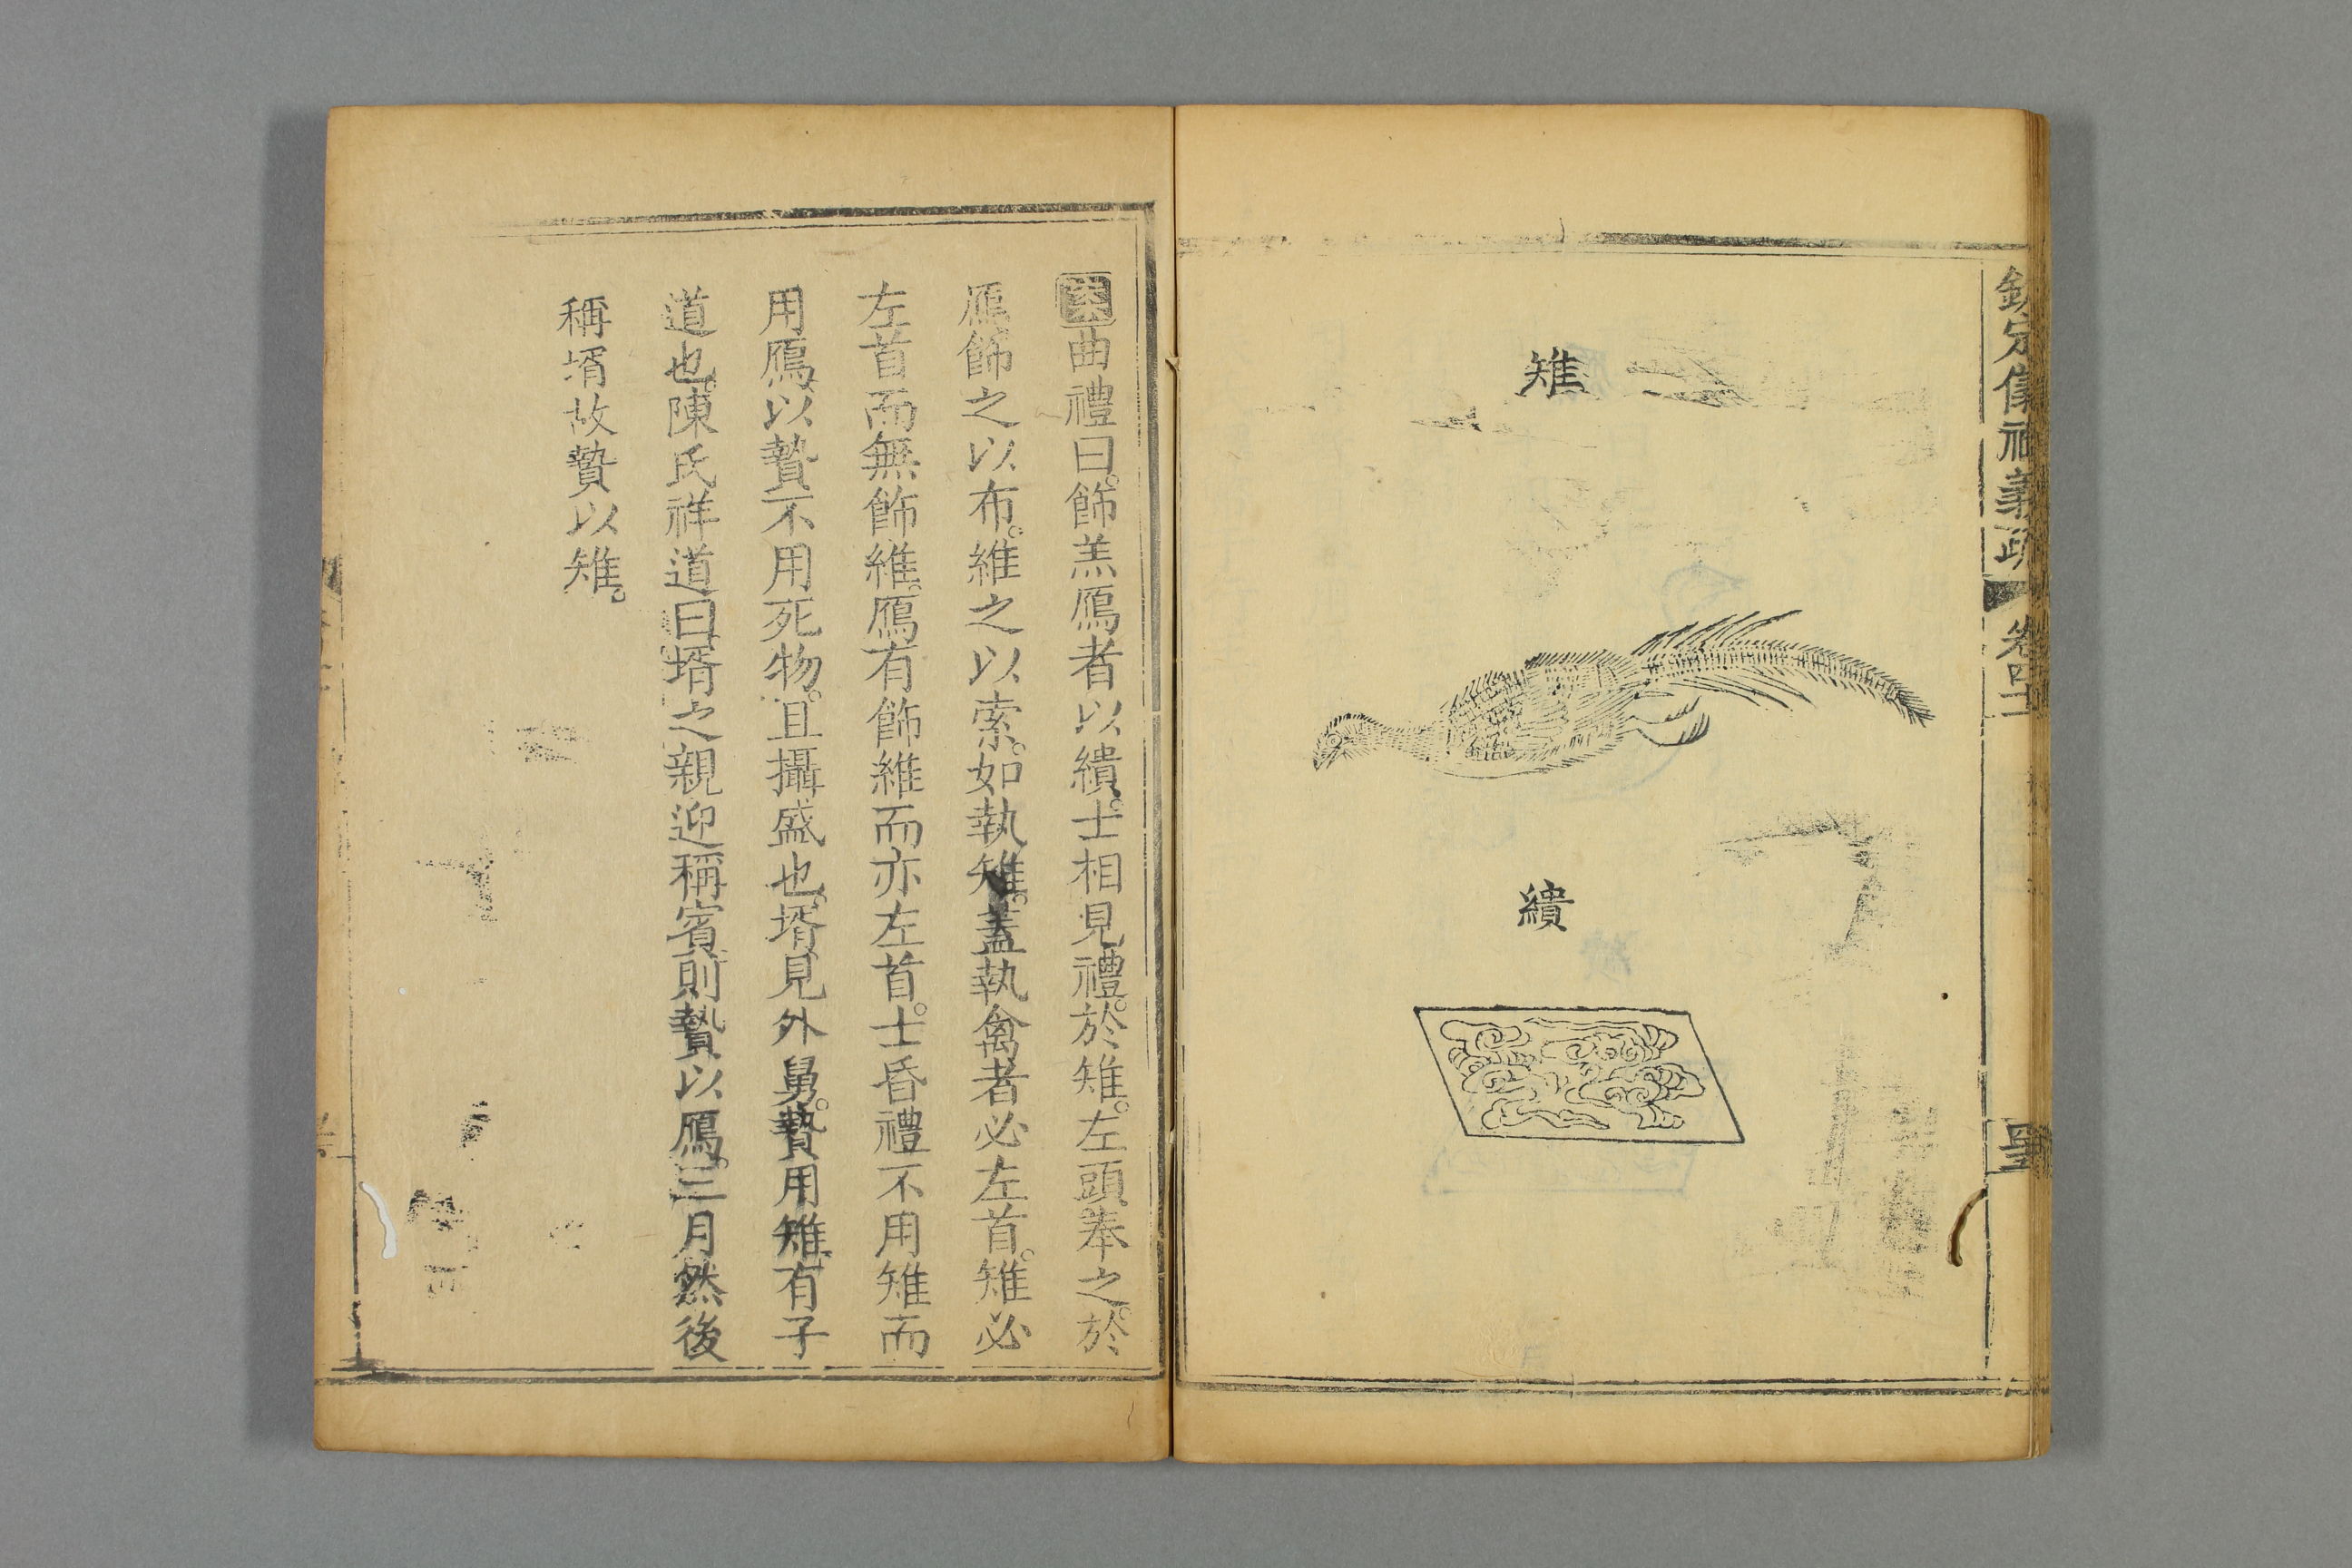 欽定儀禮義疏
卷四十
雉
繢
案曲禮曰。飾羔鴈者以繢。士相見禮。於雉。左頭奉之。於
鴈飾之以布。維之以索。如執雉。蓋執禽者必左首。雉必
左首而無飾維。鴈有飾維而亦左首。士昏禮不用雉而
用鴈。以贄不用死物。且攝盛也。壻見外舅。贄用雉。有子
道也。陳氏祥道曰。壻之親迎稱賓。則贄以鴈。三月然後
稱壻。故贄以雉。